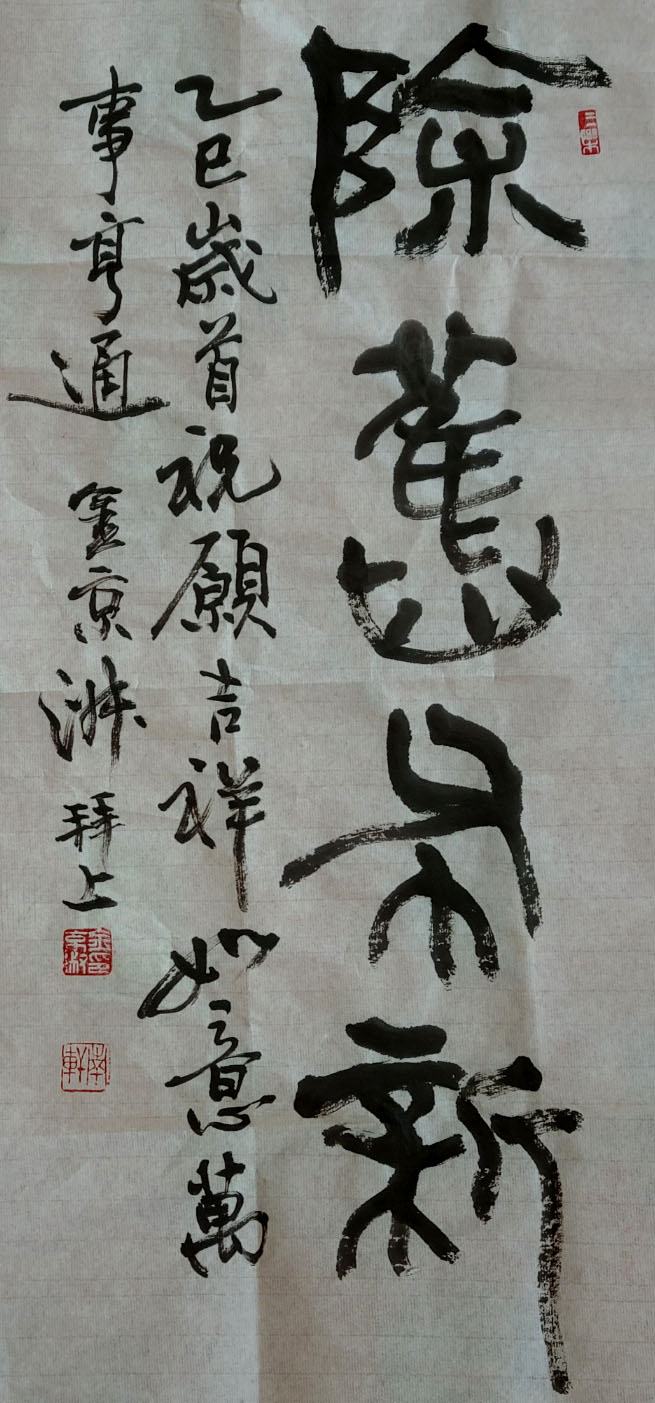 除舊布新
乙巳歲首祝願吉祥如意萬
事亨通 金京淋 拜上